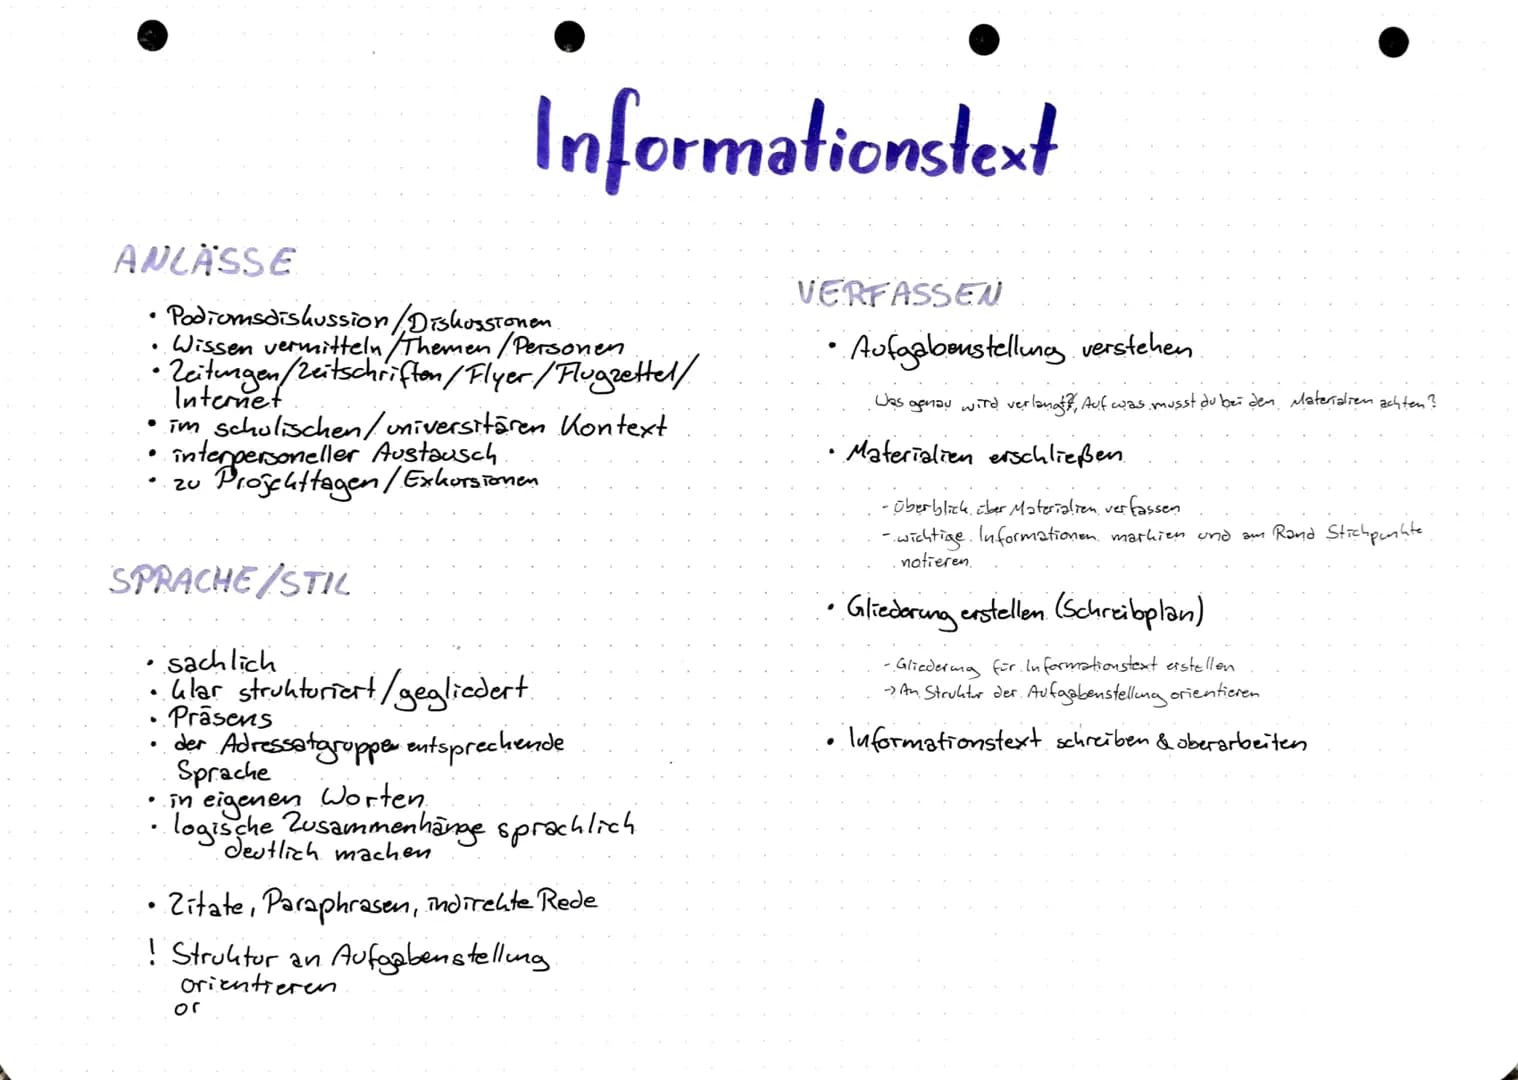 Informationstext
ANLÄSSE
• Podiumsdiskussion/Diskussionen
• Wissen vermitteln/Themen/Personen
• Zeitungen/Zeitschriften/Flyer/Flugzettel/
Internet
• im schulischen/universitären Kontext
• interpersoneller Austausch
• zu Projekttagen/Exkursionen
SPRACHE/STIL
• sachlich
• klar strukturiert/gegliedert
• Präsens
• der Adressatgruppe entsprechende
Sprache
• in eigenen Worten
• logische Zusammenhänge sprachlich
deutlich machen
• Zitate, Paraphrasen, indirekte Rede
! Struktur an Aufgabenstellung
orientieren
or
VERFASSEN
• Aufgabenstellung verstehen
Was genau wird verlangt?, Auf was musst du bei den Materialien achten?
• Materialien erschließen
- Überblick über Materialien verfassen
- wichtige Informationen markien und am Rand Stichpunkte
notieren
• Gliederung erstellen (Schreibplan)
- Gliederung für Informationstext erstellen
-> An Struktur der Aufgabenstellung orientieren
• Informationstext schreiben & überarbeiten